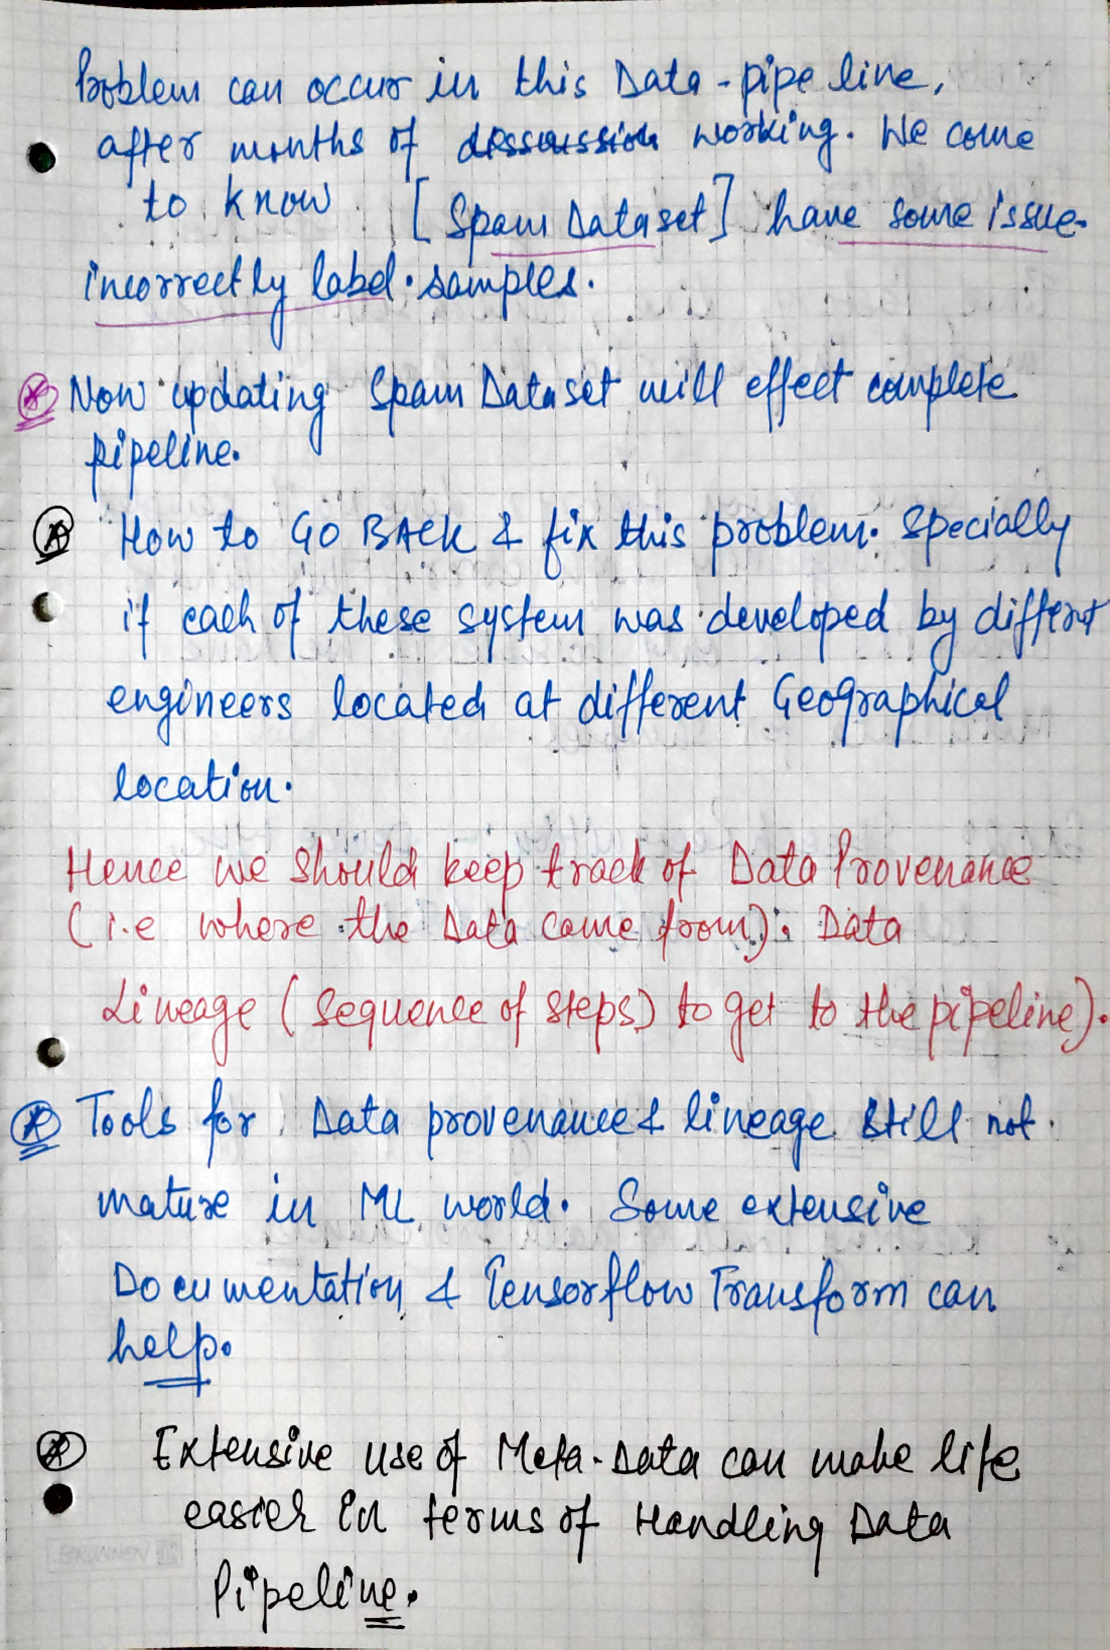 Problem can occur in this Data-pipe line,
after months of discussion working. We come
to know [Spam Dataset] have some issue
incorrectly label samples.
Now updating Spam Dataset will effect complete
pipeline.
How to GO BACK & fix this problem. Specially
if each of these system was developed by different
engineers located at different Geographical
location.
Hence we should keep track of Data Provenance
(i.e where the Data came from). Data
Lineage (Sequence of steps) to get to the pipeline).
Tools for Data provenance & lineage still not
mature in ML world. Some extensive
Documentation & Tensorflow Transform can
help.
Extensive use of Meta-Data can make life
easier in terms of Handling Data
Pipeline.
BRUNNEN